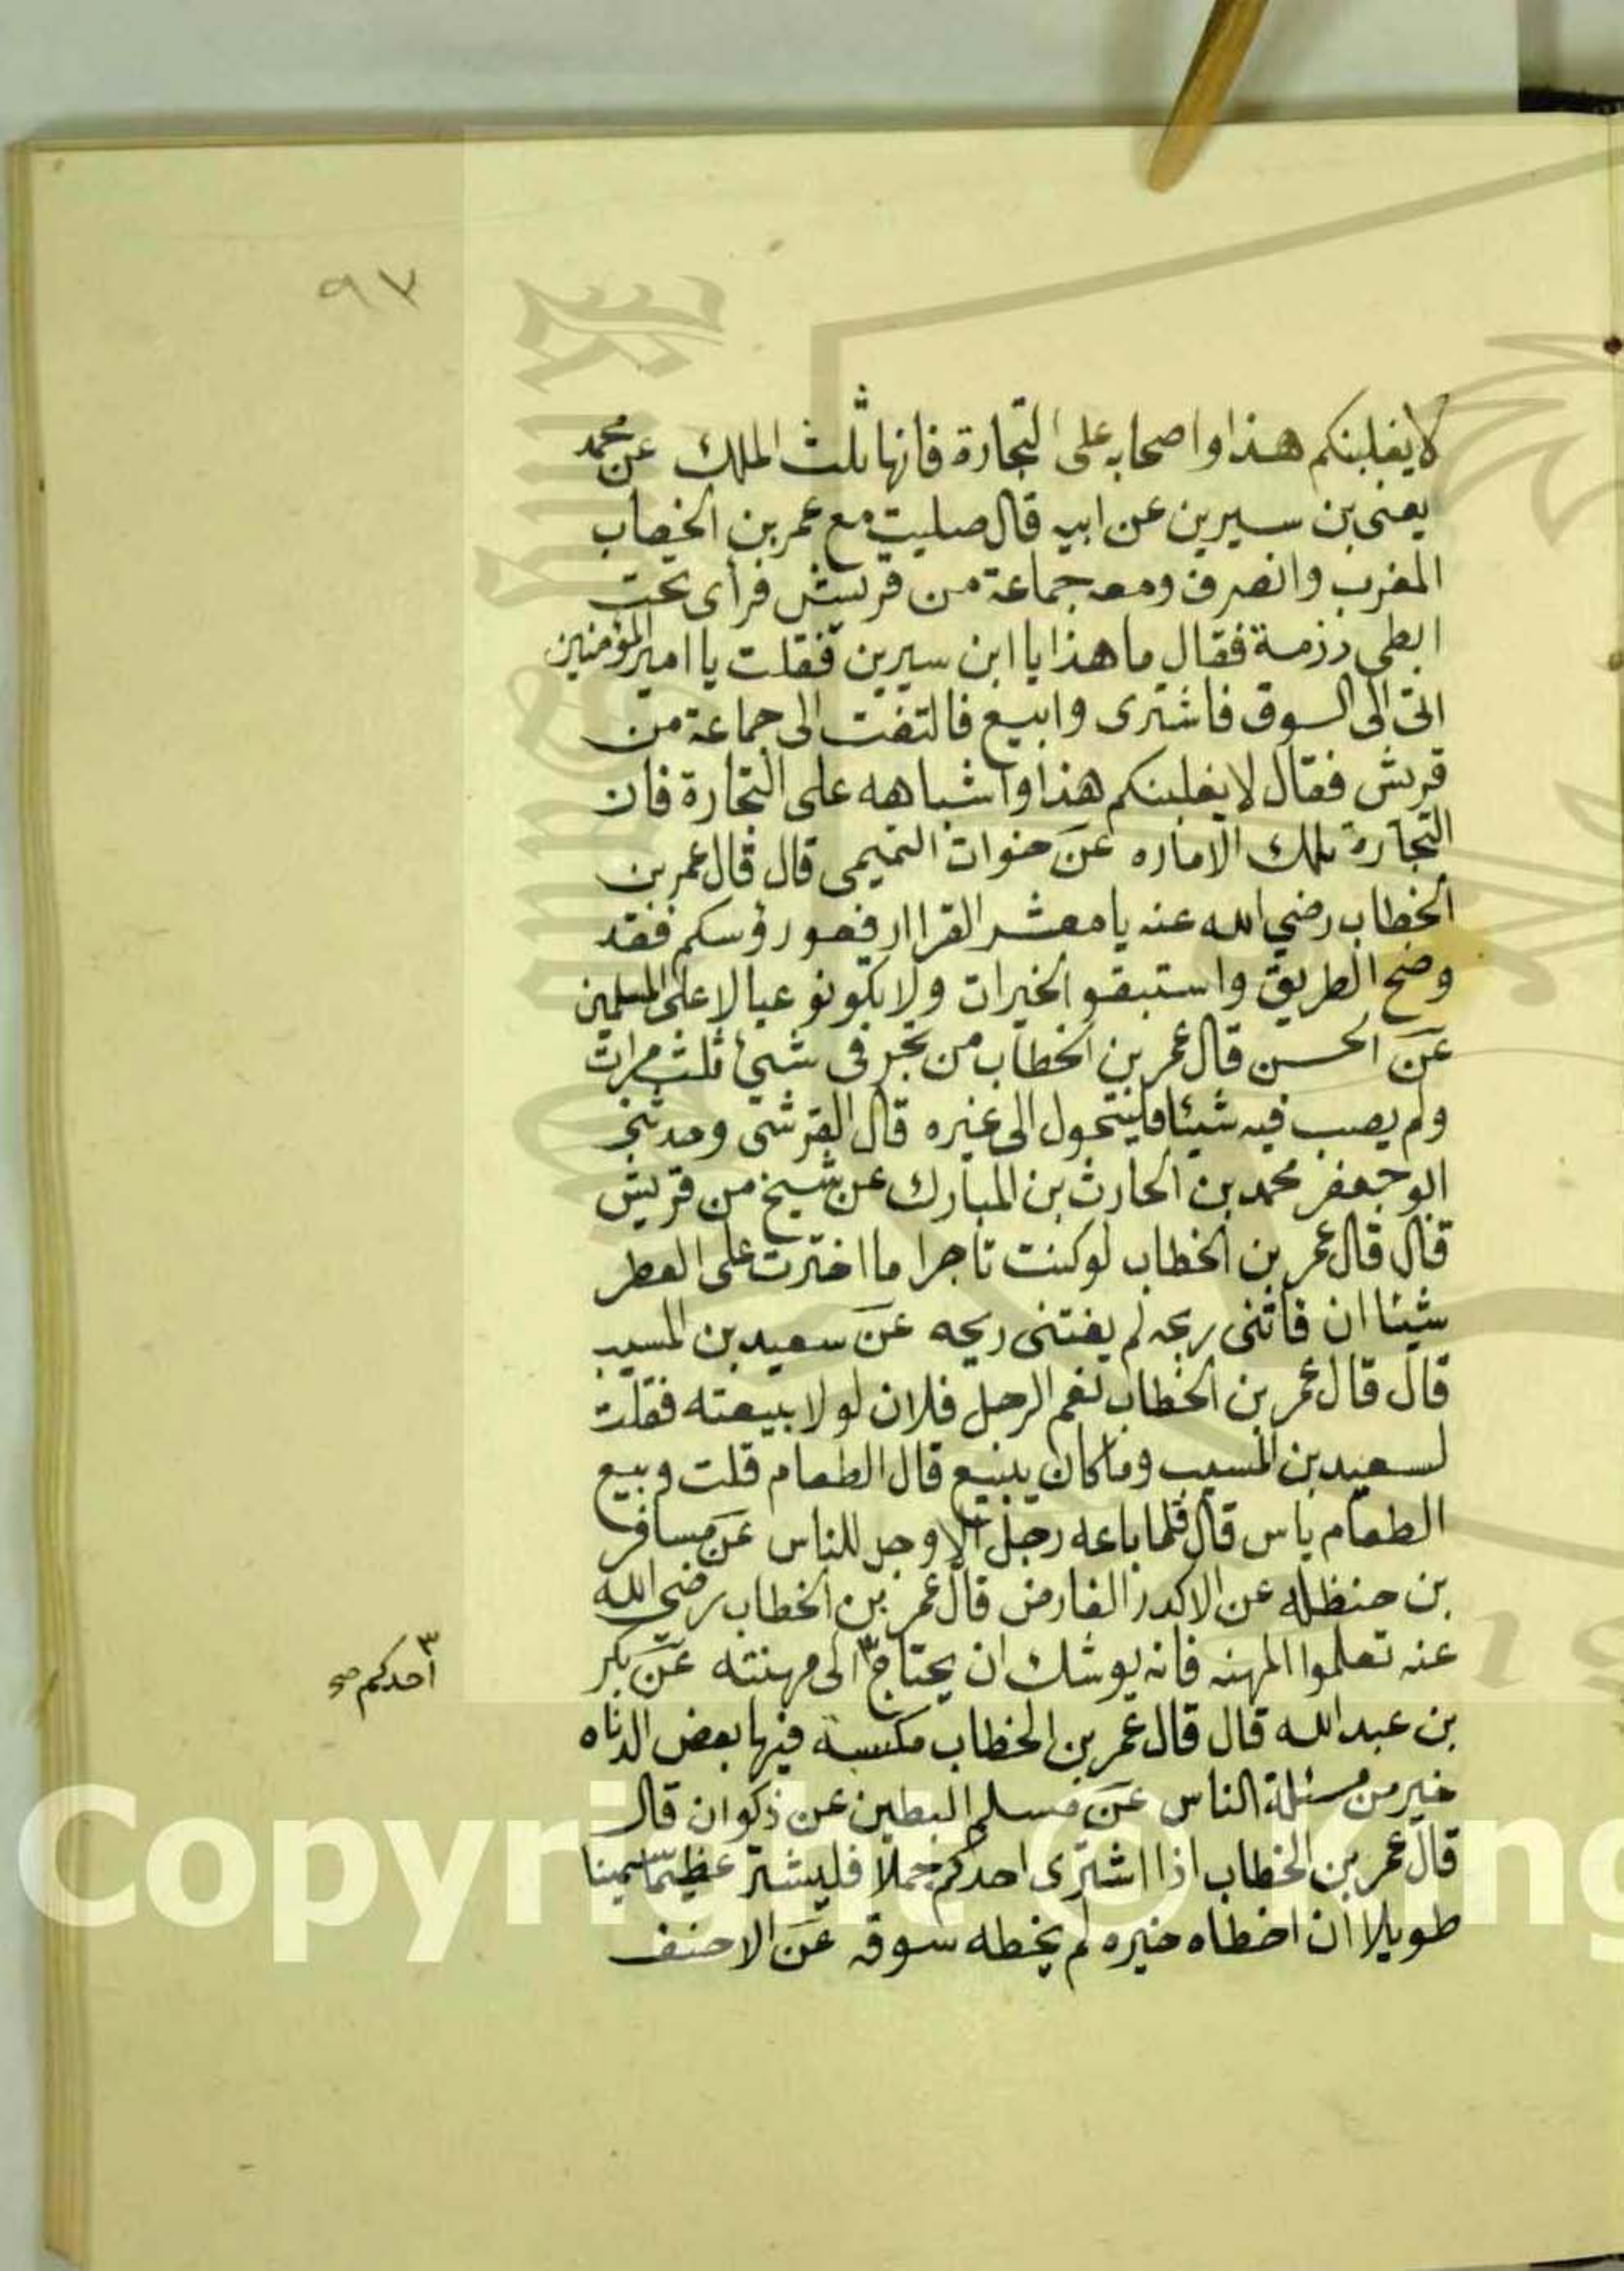 ٩٧
لا يغلبنكم هذا واصحابه على التجارة فانها ثلث الملك عن محمد
يعنى بن سيرين عن ابيه قال صليت مع عمر بن الخطاب
المغرب وانصرف ومعه جماعة من قريش فرأى تحت
ابطى رزمة فقال ما هذا يا ابن سيرين فقلت يا امير المؤمنين
اتى الى السوق فاشترى وابيع فالتفت الى جماعة من
قريش فقال لا يغلبنكم هذا واشباهه على التجارة فان
التجارة ثلث الاماره عن خوات التميمى قال قال عمر بن
الخطاب رضي الله عنه يا معشر القرا ارفعو رؤسكم فقد
وضح الطريق واستبقو الخيرات ولا تكونو عيالا على المسلمين
عن الحسن قال عمر بن الخطاب من تجر فى شئ ثلث مرات
ولم يصب فيه شيئا فليتحول الى غيره قال القرشى وحدثنى
ابو جعفر محمد بن الحارث بن المبارك عن شيخ من قريش
قال قال عمر بن الخطاب لو كنت تاجرا ما اخترت على العطر
شيئا ان فاتنى ربحه لم يفتنى ريحه عن سعيد بن المسيب
قال قال عمر بن الخطاب نعم الرجل فلان لولا بيعته فقلت
لسعيد بن المسيب وما كان يبيع قال الطعام قلت وبيع
الطعام باس قال قلما باعه رجل الا وجد للناس عن مسافر
بن حنظله عن الاكدر الفارض قال عمر بن الخطاب رضي الله
عنه تعلموا المهنه فانه يوشك ان يحتاج ٣ الى مهنته عن بكر
٣ احدكم صح
بن عبد الله قال قال عمر بن الخطاب مكسبة فيها بعض الدناه
خير من مسئلة الناس عن مسلم البطين عن ذكوان قال
قال عمر بن الخطاب اذا اشترى احدكم جملا فليشتر عظيما سمينا
طويلا ان اخطاه خيره لم يخطه سوقه عن الاحنف
Copyright © King